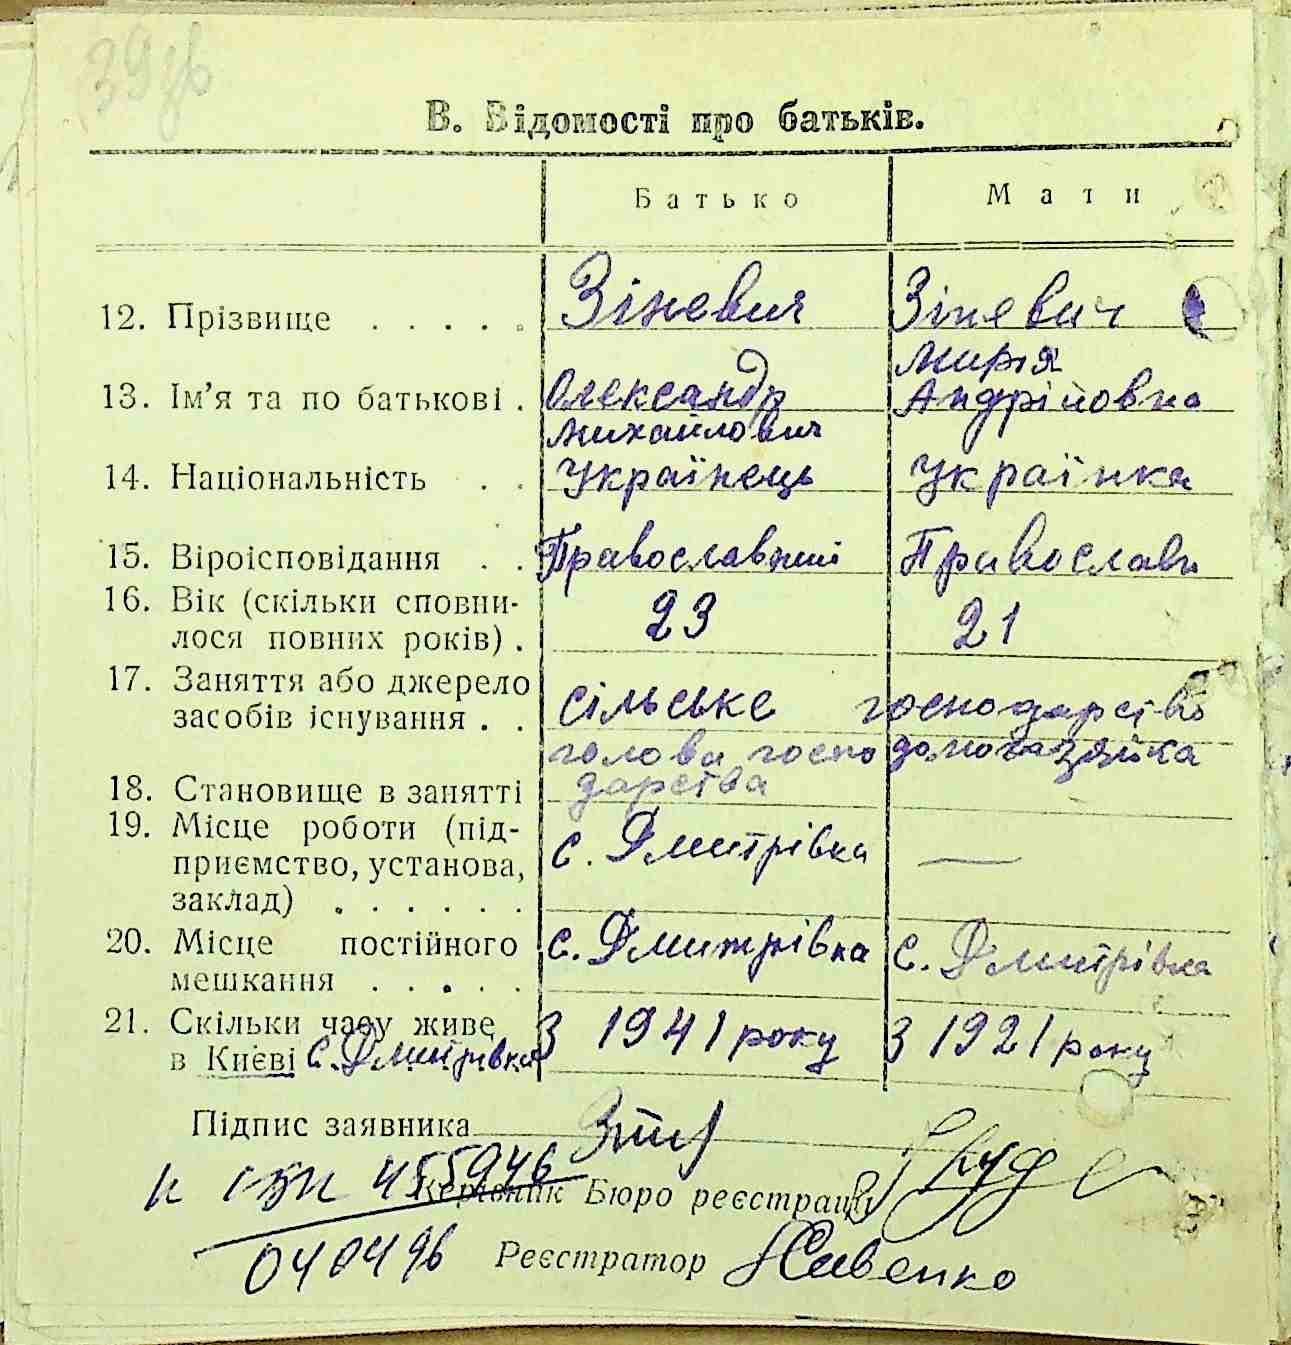 39 зв
В. Відомості про батьків.
Батько Мати
12. Прізвище . . . . . Зіневич Зіневич
Марія
13. Ім'я та по батькові . Олександр Андрійовна
Михайлович
14. Національність . . Українець Українка
15. Віроісповідання . . Православний Православн
16. Вік (скільки сповни-
лося повних років) . 23 21
17. Заняття або джерело
засобів існування . . сільське господарство
голова госпо домогазяйка
18. Становище в занятті дарства
19. Місце роботи (під-
приємство, установа, с. Дмитрівка —
заклад) . . . . . .
20. Місце постійного с. Дмитрівка с. Дмитрівка
мешкання . . . . .
21. Скільки часу живе з 1941 року з 1921 року
в Києві с. Дмитрівка
Підпис заявника
455946
Керівник Бюро реєстрації
040496 Реєстратор Савенко